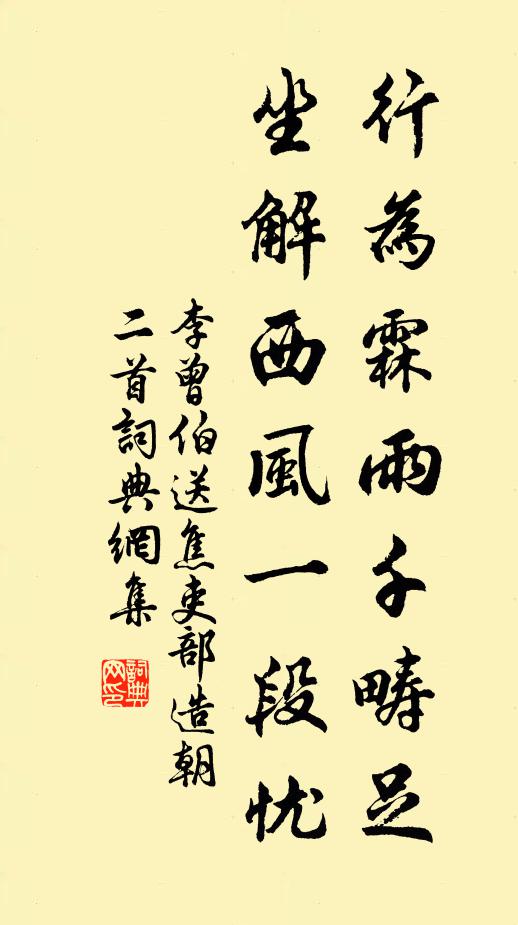 行為霖雨千疇足
坐解西風一段忧
李曾伯送焦吏部造朝
二首詞典網集
詞典网印